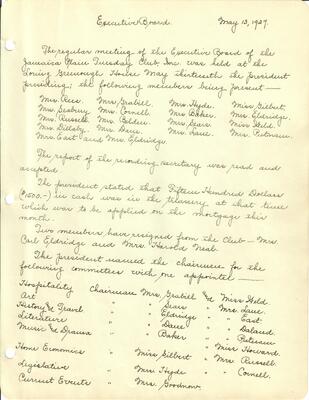 Executive Board. May 13, 1929.
The regular meeting of the Executive Board of the
Jamaica Plain Tuesday Club, Inc. was held at the
Loring Greenough House May thirteenth the president
presiding, the following members being present—
Mrs. Rees. Mrs. Grabill. Mrs. Hyde. Miss Gilbert.
Mrs. Seabury Mrs. Cornell. Mrs. Baker. Mrs. Eldridge.
Mrs. Russell. Mrs. Selden. Mrs. Sears Miss Held.
Mrs. Dane. Mrs. Lane. Mrs. Peterson.
Mrs. East and Mrs. Eldridge.
The report of the recording secretary was read and
accepted
The president stated that Fifteen Hundred Dollars
($1500.-) in cash was in the treasury at that time
which was to be applied on the mortgage this
month.
Two members have resigned from the club— Mrs
Carl Eldridge and Mrs. Harold Neal.
The president named the chairmen for the
following committees with one appointee—
Hospitality Chairman Mrs. Grabill & Miss Held.
Art " " Sears " Mrs. Lane.
History & Travel " " Eldridge " " East.
Literature " " Dane " " Daland.
Music & Drama " " Baker " " Peterson
Home Economics " Miss Gilbert " Miss Howard.
" Mrs. Russell.
Legislative " Mrs Hyde " " Cornell.
Current Events " Mrs. Goodnow.